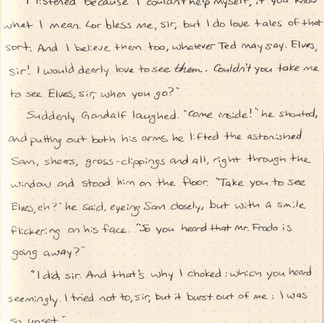 I listened because I couldn't help myself, if you know
what I mean. Lor bless me, sir, but I do love tales of that
sort. And I believe them too, whatever Ted may say. Elves,
sir! I would dearly love to see them. Couldn't you take me
to see Elves, sir, when you go?"
Suddenly Gandalf laughed. "Come inside!" he shouted,
and putting out both his arms he lifted the astonished
Sam, shears, grass-clippings and all, right through the
window and stood him on the floor. "Take you to see
Elves, eh?" he said, eyeing Sam closely, but with a smile
flickering on his face. "So you heard that Mr. Frodo is
going away?"
"I did, sir. And that's why I choked: which you heard
seemingly. I tried not to, sir, but it burst out of me: I was
so upset."